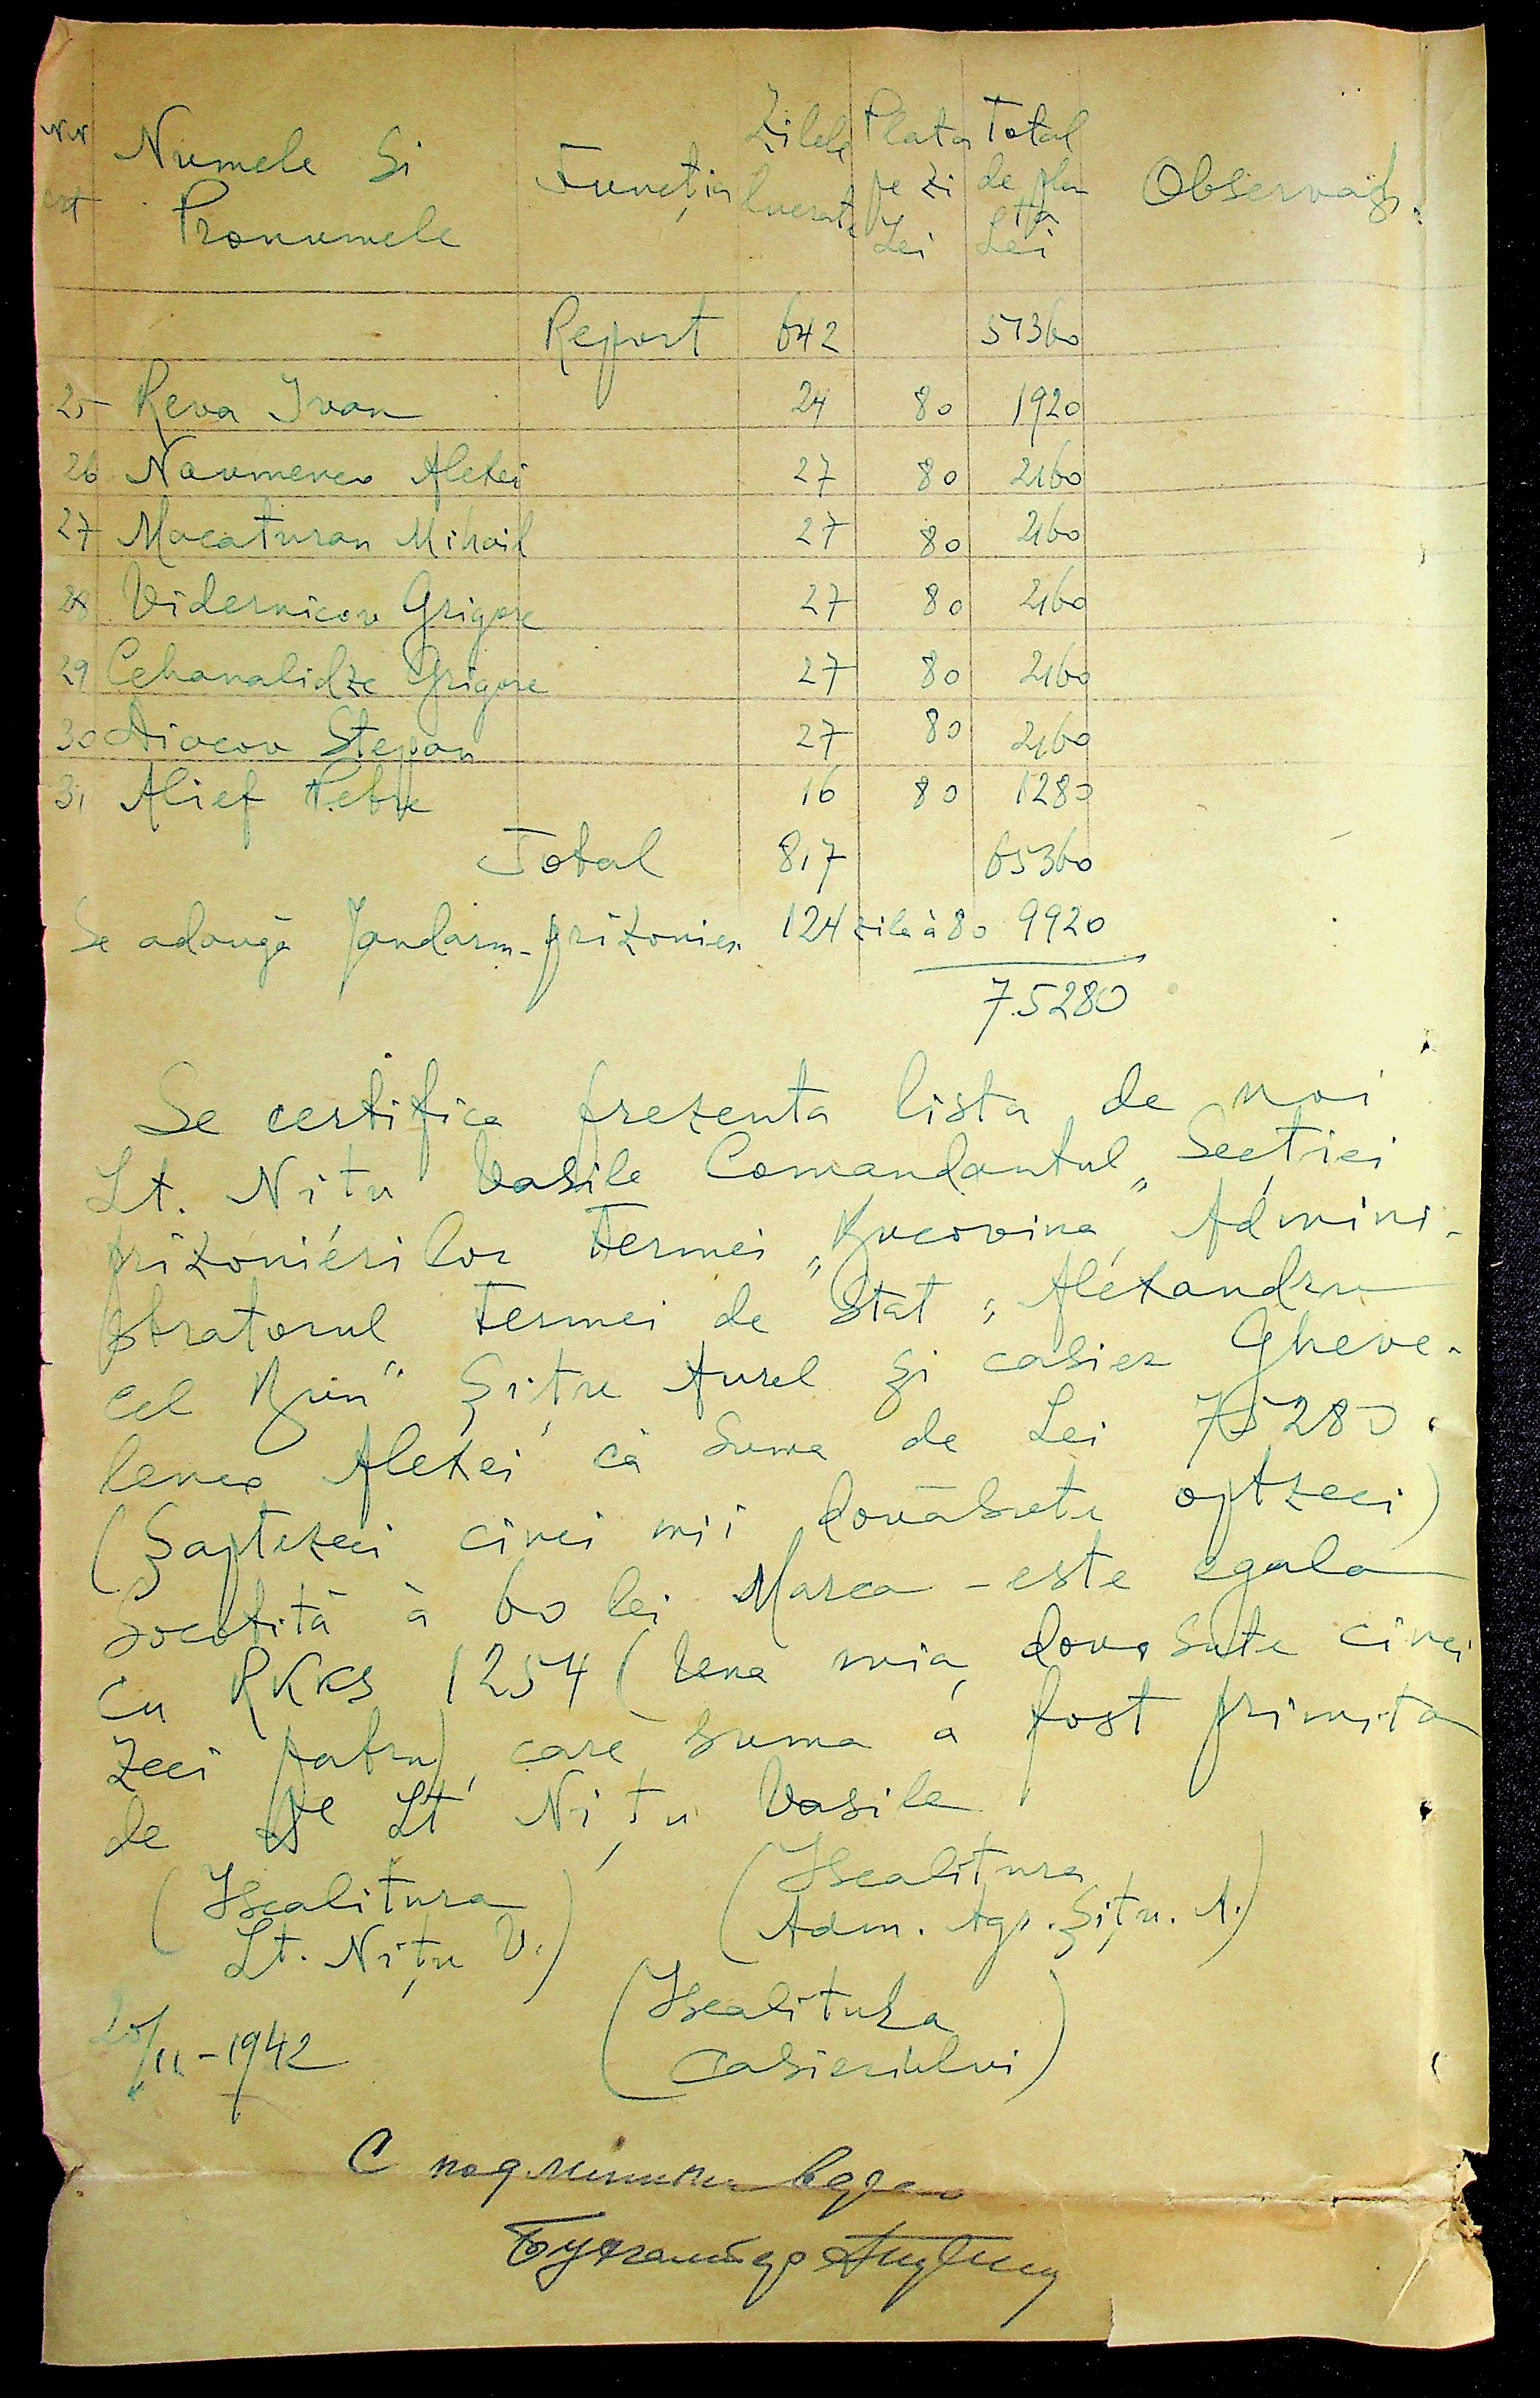 Nr Numele Si Funcția Zilele Plata Total Observații
crt Pronumele lucrate pe zi de pla
Lei tă Lei
Report 642 51360
25 Reva Ivan 24 80 1920
26 Naumenco Alexei 27 80 2160
27 Macaturan Mihail 27 80 2160
28 Vidernicov Grigore 27 80 2160
29 Cehanalidze Grigore 27 80 2160
30 Diacov Stepan 27 80 2160
31 Alief Petre 16 80 1280
Total 817 65360
Se adaugă Jandarm-prizonier 124 zile à 80 9920
75280
Se certifica prezenta lista de noi
Lt. Nițu Vasile Comandantul „Secției
prizoniérilor Fermei „Bucovina, Admini-
stratorul Fermei de Stat „Alexandru
cel Bun" Șițu Aurel și casier Gheve-
lenco Alexei că suma de Lei 75280.
(Șaptezeci cinci mii douăsute optzeci)
Socotită à 60 lei Marca - este egala
cu RKKS 1254 (Una mia, doua sute cinci
zeci patru), care suma a fost primita
de Lt Nițu Vasile
(Iscalitura (Iscalitura
Lt. Nițu V.) Adm. Agr. Șițu. A.)
20/11-1942 (Iscalitura
Casierului)
С подлинным верно
Бухгалтер